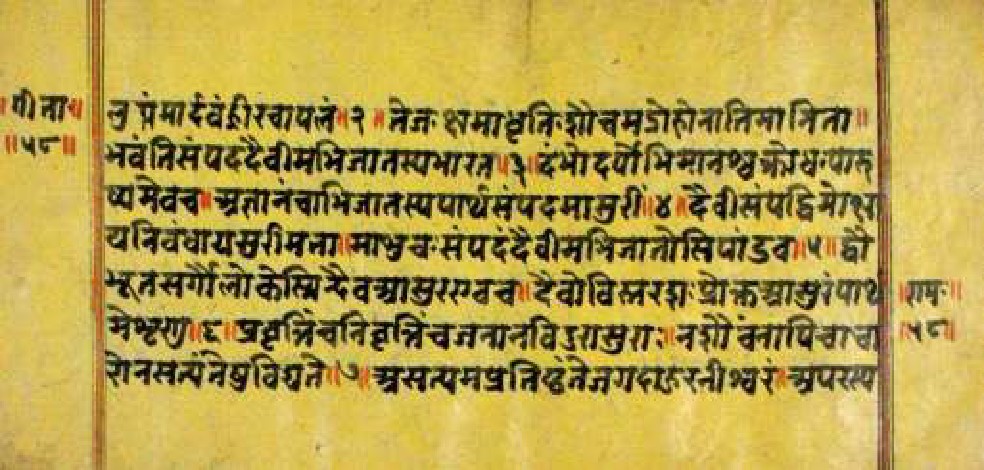 गीता
॥५८॥
लु प्तंमार्दवंह्रीरचापलं॥२॥तेजःक्षमाधृतिःशौचमद्रोहोनातिमानिता॥
भवंतिसंपदंदैवीमभिजातस्यभारत॥३॥दंभोदर्पोभिमानश्चक्रोधःपारु
ष्यमेवच॥अज्ञानंचाभिजातस्यपार्थसंपदमासुरीं॥४॥दैवीसंपद्विमोक्षा
यनिबंधायासुरीमता॥माशुचःसंपदंदैवीमभिजातोसिपांडव॥५॥द्वौ
भूतसर्गौलोकेस्मिन्दैवआसुरएवच॥दैवोविस्तरशःप्रोक्तआसुरंपार्थ
मेशृणु॥६॥प्रवृत्तिंचनिवृत्तिंचजनानविदुरासुराः॥नशौचंनापिचाचा
रोनसत्यंतेषुविद्यते॥७॥असत्यमप्रतिष्ठंतेजगदाहुरनीश्वरं॥अपरस्प
॥रामः॥
॥५८॥